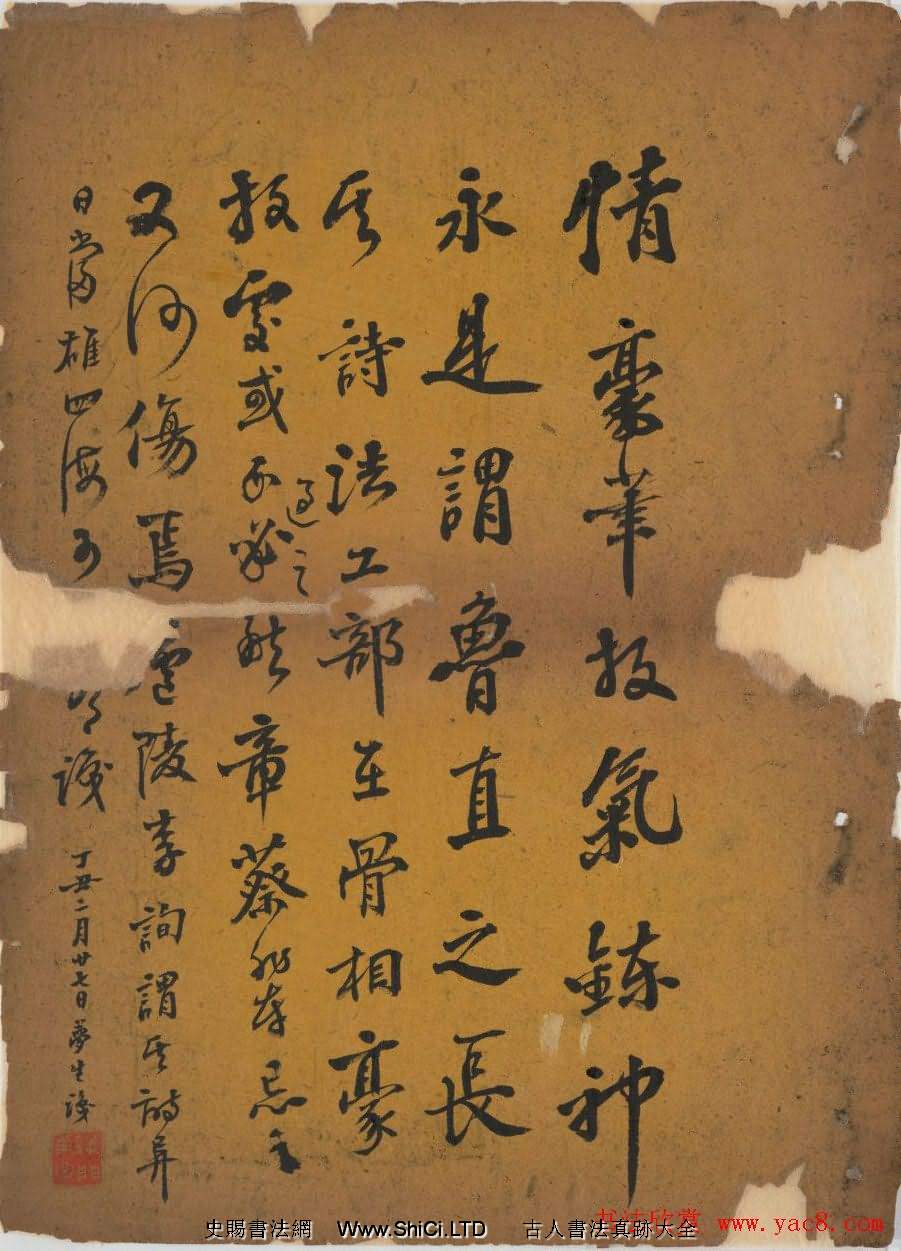 情豪筆放氣鍊神
永是謂魯直之長
其詩法工部至骨相豪
放處或不必過之然章蔡 忌之
又何傷焉 廬陵李詢謂其詩
日當雄四海 識
丁丑二月廿七日夢生識
史賜書法網 Www.ShiCi.LTD 古人書法真跡大全
书法欣赏 www.yac8.com